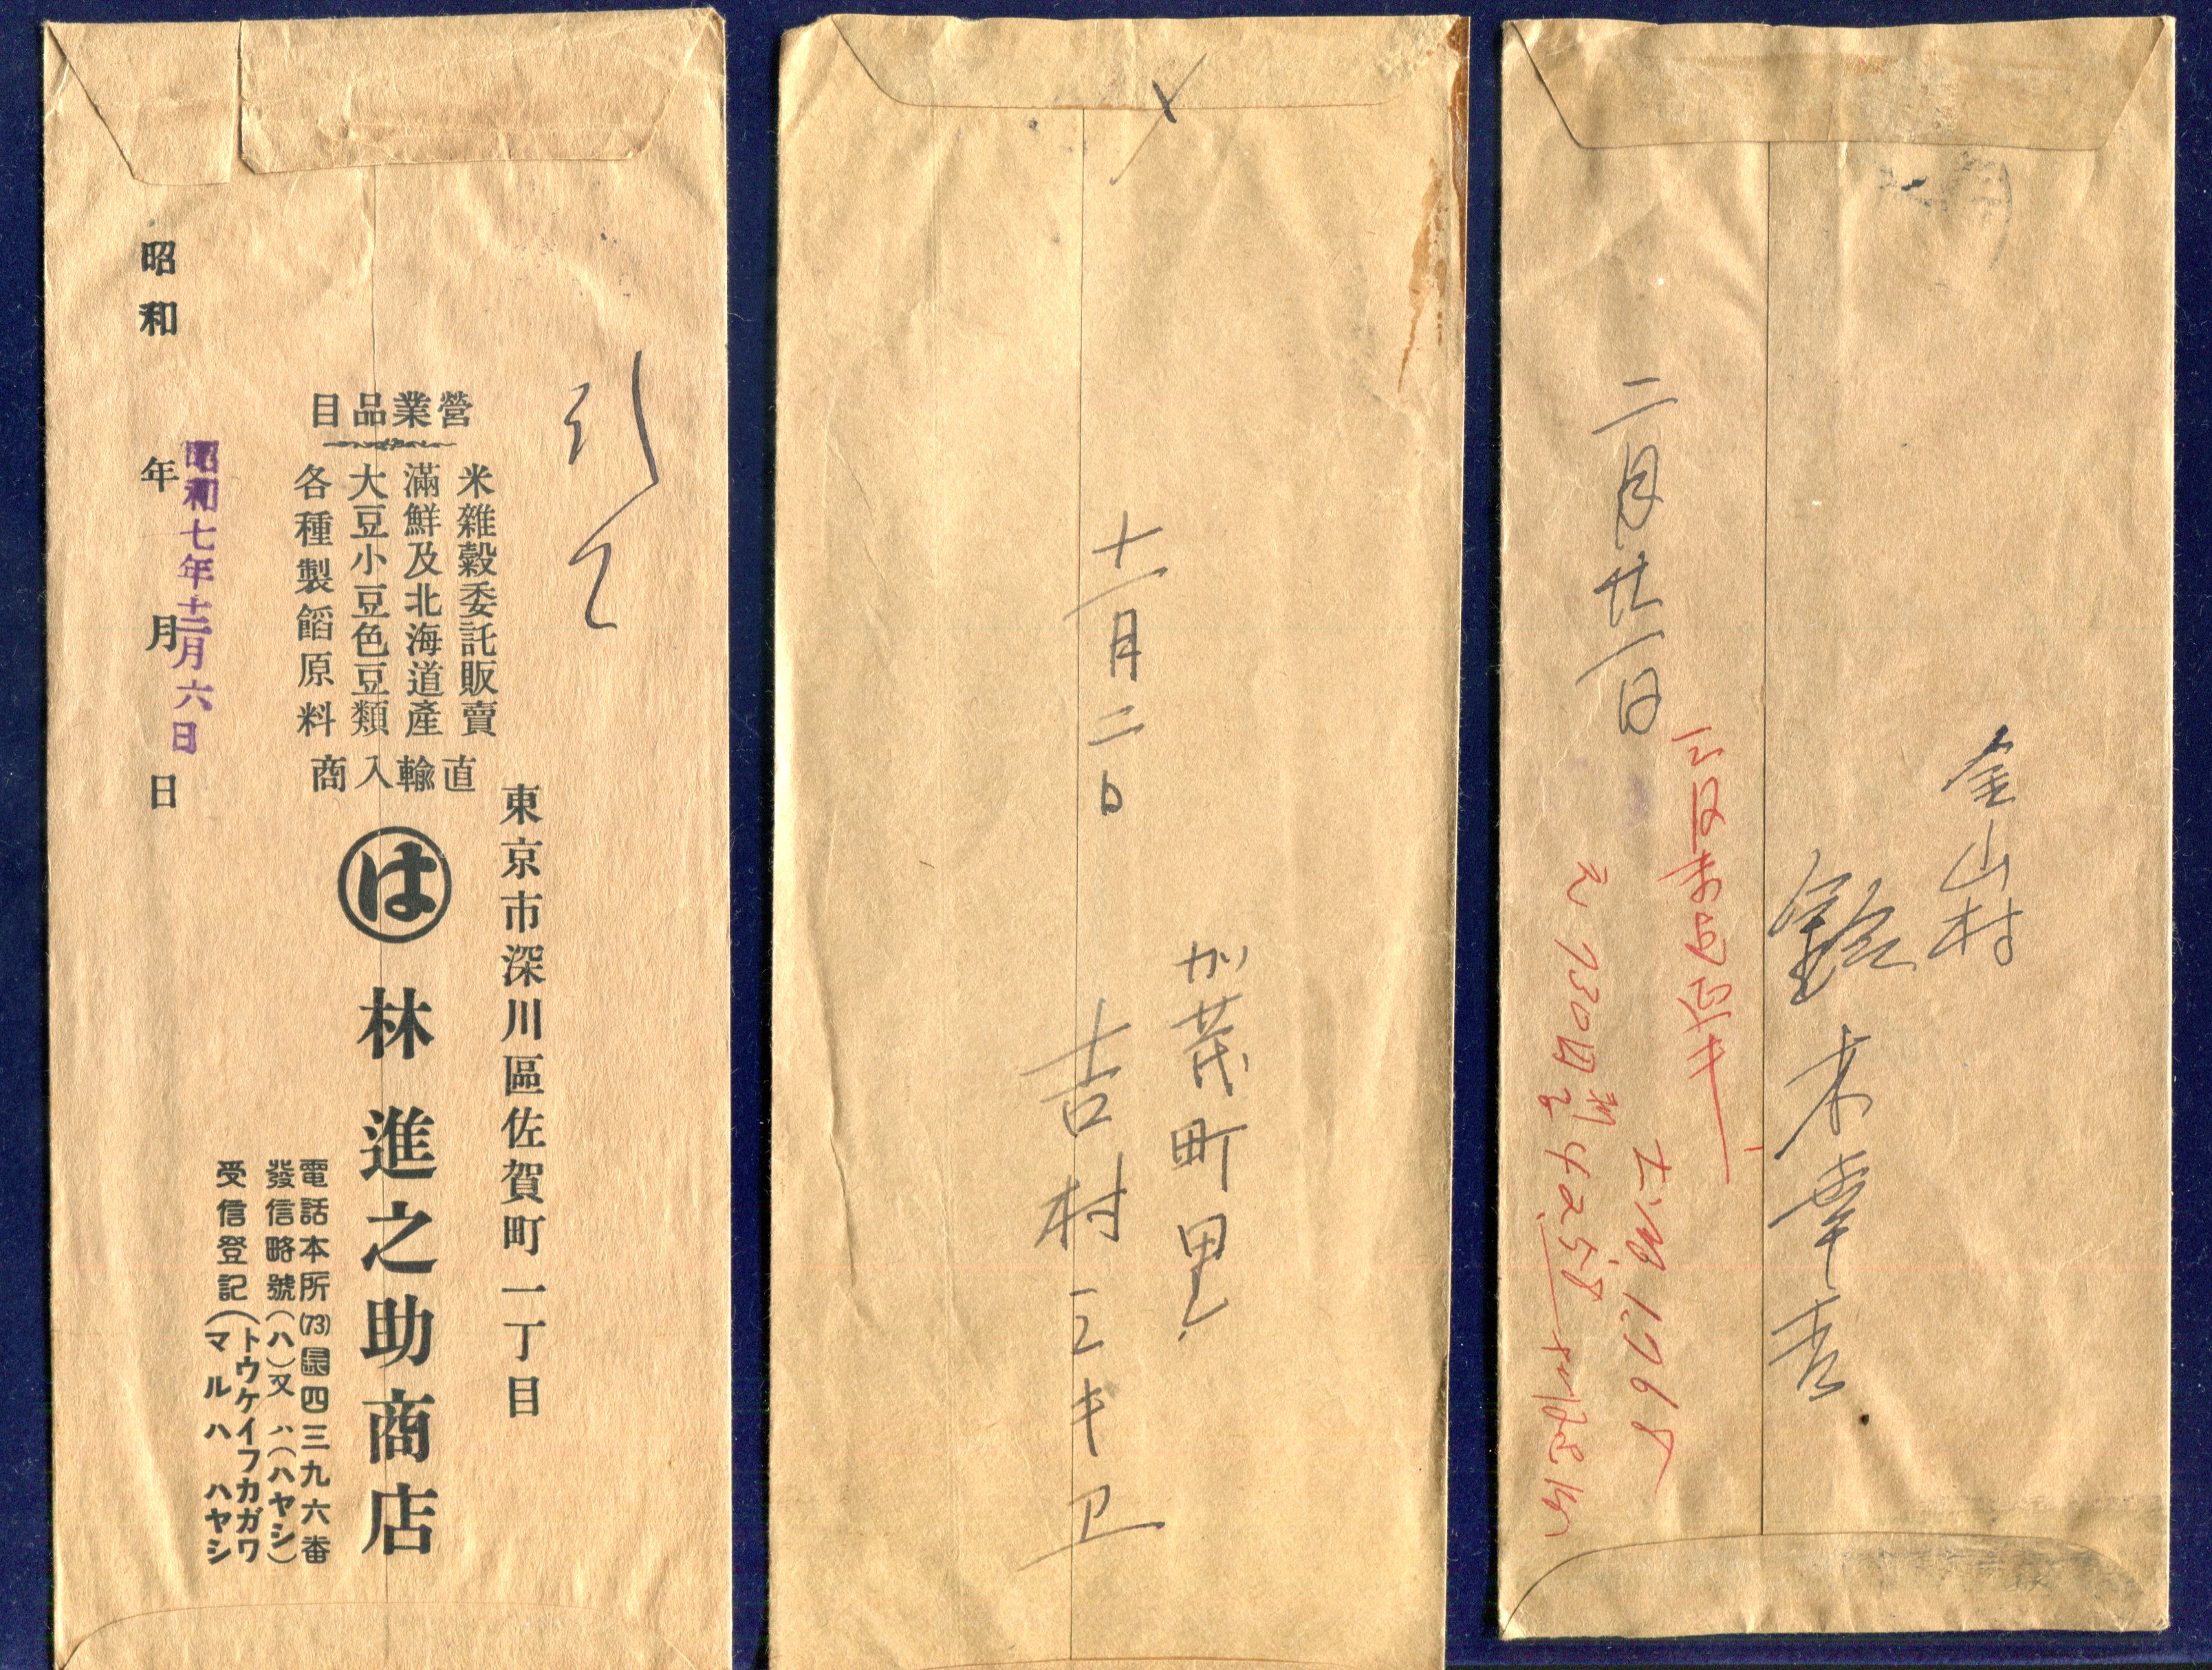 引
東京市深川區佐賀町一丁目
營業品目
米雜穀委託販賣
滿鮮及北海道產
大豆小豆色豆類
各種製餡原料
直輸入商
は
林進之助商店
電話本所(73)四三九六番
發信略號(ハ)又ハ(ハヤシ)
受信登記(トウケイフカガワ
マルハハヤシ
昭和 年 月 日
昭和七年十二月六日
加茂町里
吉村三キ卫
十一月二日
金山村
鈴木幸吉
二月廿一日
1768
730
4258